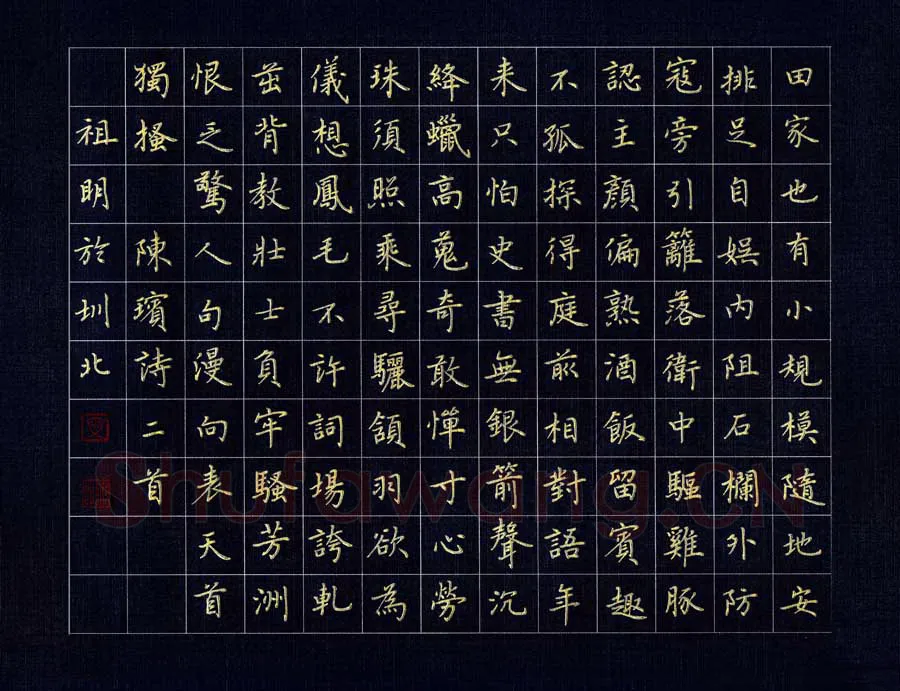 田家也有小規模隨地安
排足自娯内阻石欄外防
寇旁引籬落衛中驅雞豚
認主顏偏熟酒飯留賓趣
不孤探得庭前相對語年
来只怕史書無銀箭聲沉
絳蠟高蒐奇敢憚寸心勞
珠須照乘尋驪頷羽欲為
儀想鳳毛不許詞場誇軋
茁背教壯士負牢騷芳洲
恨乏驚人句漫向表天首
獨搔 陳璸詩二首
祖明於圳北
Shufawang.CN